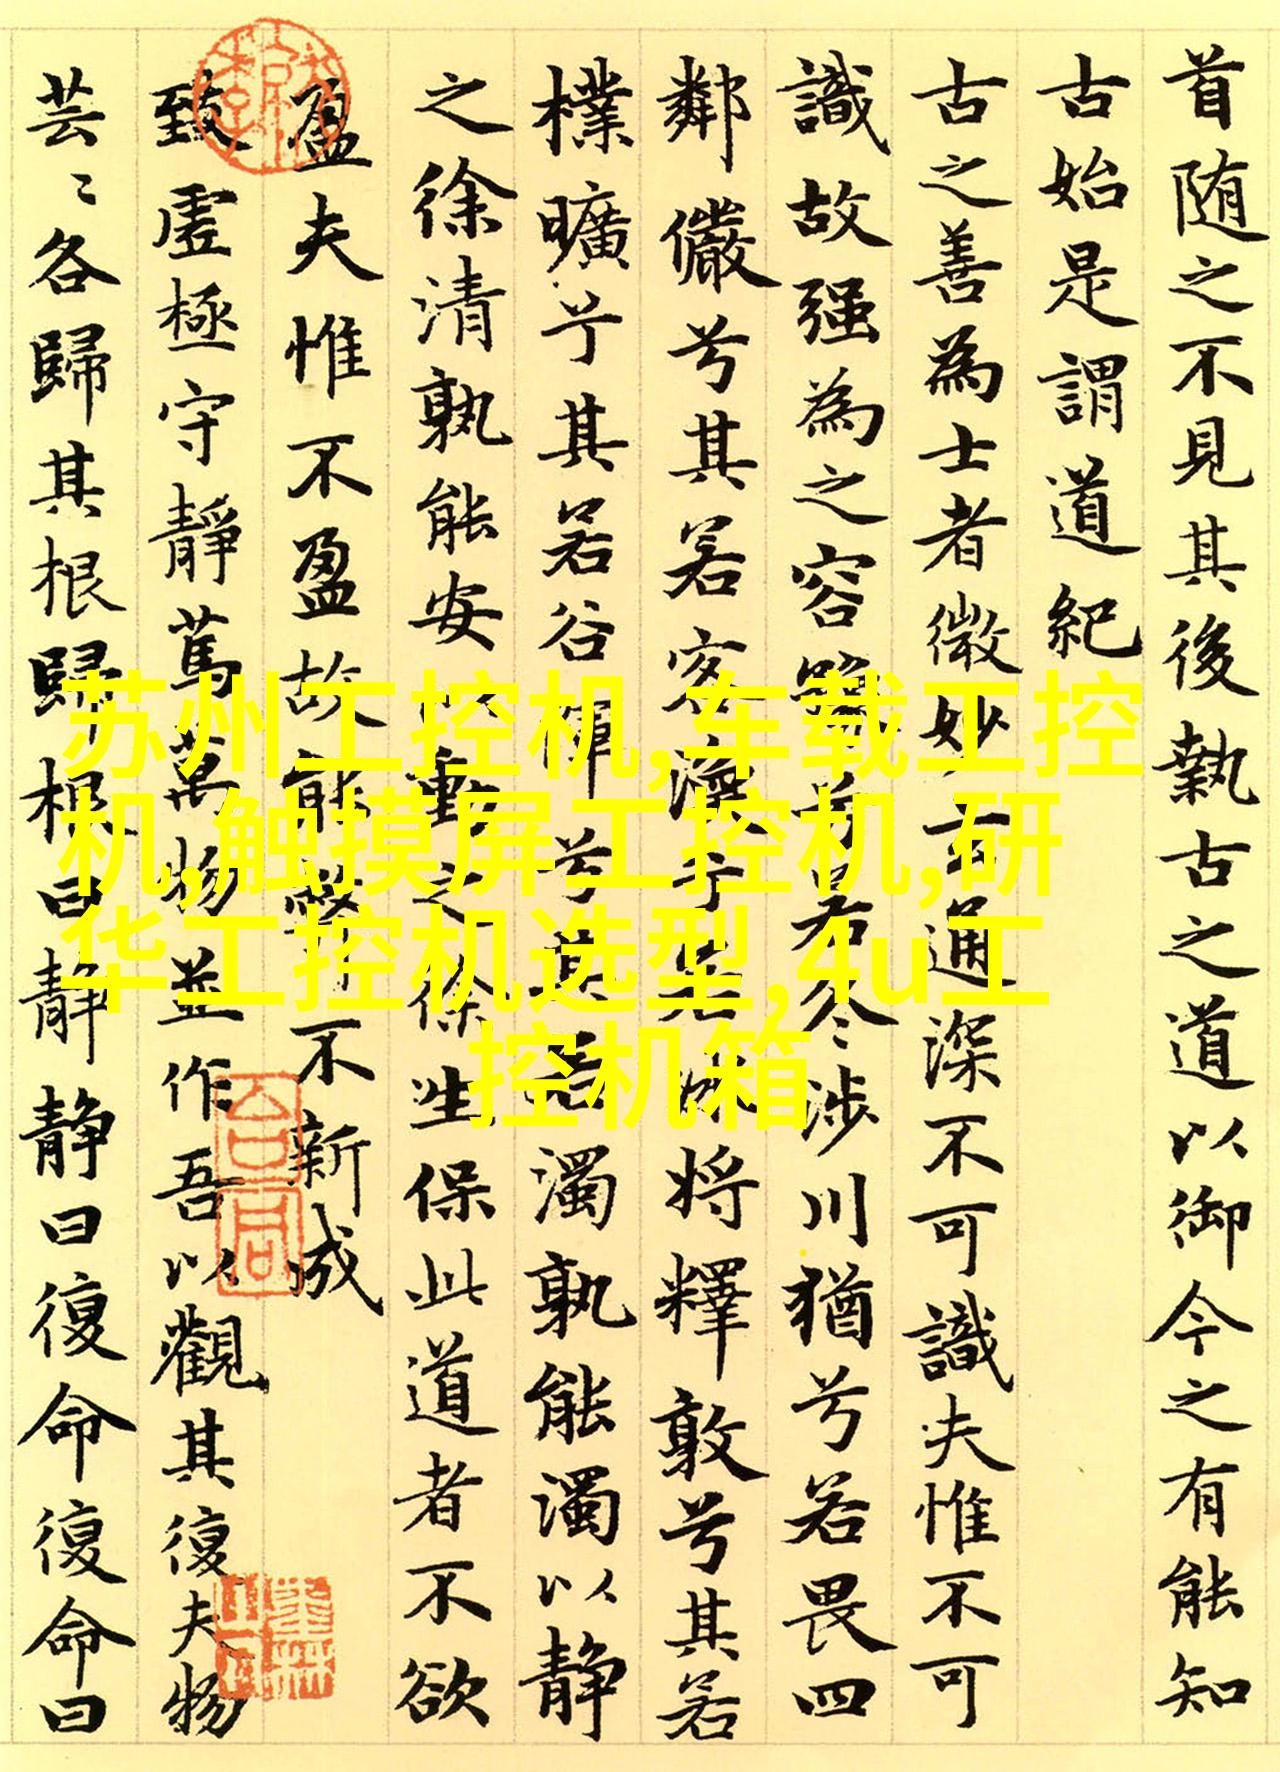 首随之不見其後執古之道以御今之有能知
古始是謂道紀
古之善為士者微妙玄通深不可識夫惟不可
識故强為之容豫兮若冬涉川猶兮若畏四
鄰儼兮其若客渙乎若冰將釋敦兮其若
樸曠乎其若谷渾兮其若濁孰能濁以静
之徐清孰能安以動之徐生保此道者不欲
盈夫惟不盈故能敝不新成
致虛極守靜篤萬物並作吾以觀其復夫物
芸〻各歸其根歸根曰静静曰復命復命曰
苏州工控机,车载工控
机,触摸屏工控机,研
华工控机选型,4u工
控机箱